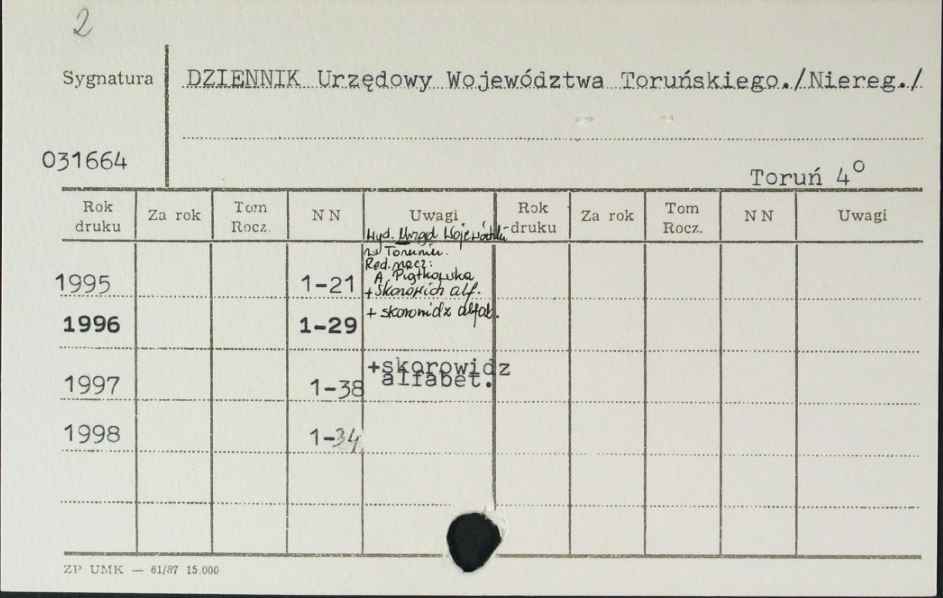 2
Sygnatura
DZIENNIK Urzędowy Województwa Toruńskiego./Niereg./
031664
Toruń 4°
Rok druku Za rok Tom Rocz. NN Uwagi Rok druku Za rok Tom Rocz. NN Uwagi
Wyd. Urząd Wojewódzki
w Toruniu.
Red. nacz:
A. Piątkowska
1995 1-21 + skorowidz alf.
1996 1-29 + skorowidz alfab.
+skorowidz
alfabet.
1997 1-38
1998 1-34
ZP UMK — 61/87 15.000